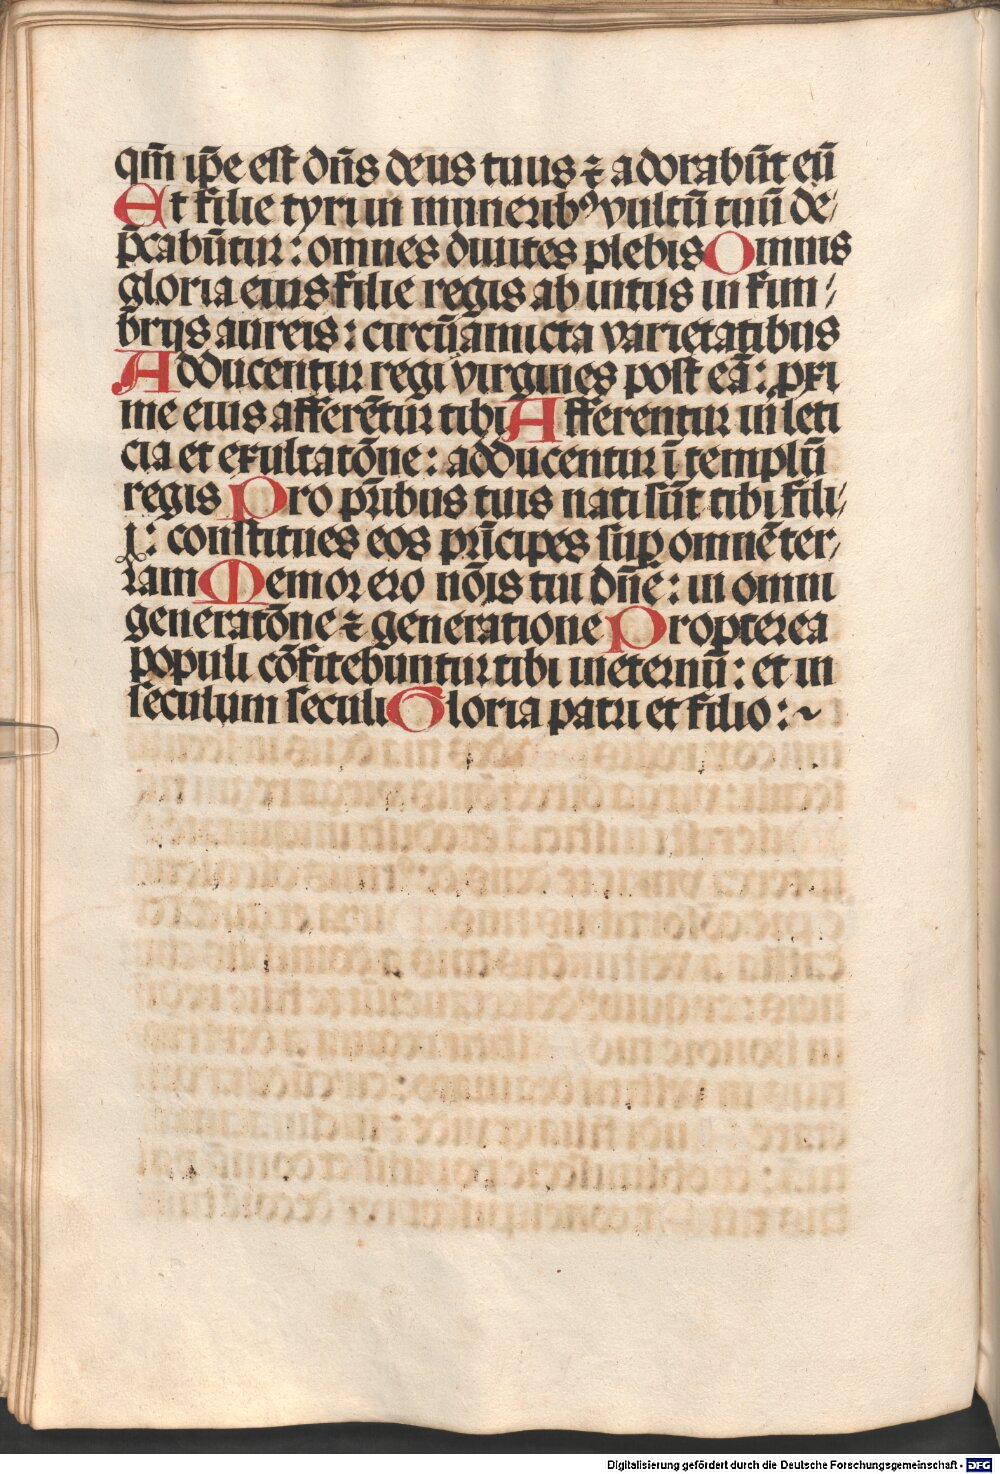 qm̄ ip̄e est dn̄s deus tuus ⁊ adorabūt eū
Et filie tyri in munerib⁹ vultū tuū de⸗
p̄cabūtur : omnes diuites plebis Omnis
gloria eius filie regis ab intus in fim⸗
brijs aureis : circūamicta varietatibus
Adducentur regi virgines post eā : ꝓxi
me eius afferētur tibi Afferentur in leti
cia et exultatōne : adducentur ī templū
regis Pro pr̄ibus tuis nati sūt tibi fili⸗
i : constitues eos prīcipes suꝑ omnē ter⸗
ram Memor ero nōis tui dn̄e : in omni
generatōne ⁊ generatione Propterea
populi cōfitebuntur tibi in eternū : et in
seculum seculi Gloria patri et filio : ~
Digitalisierung gefördert durch die Deutsche Forschungsgemeinschaft - DFG